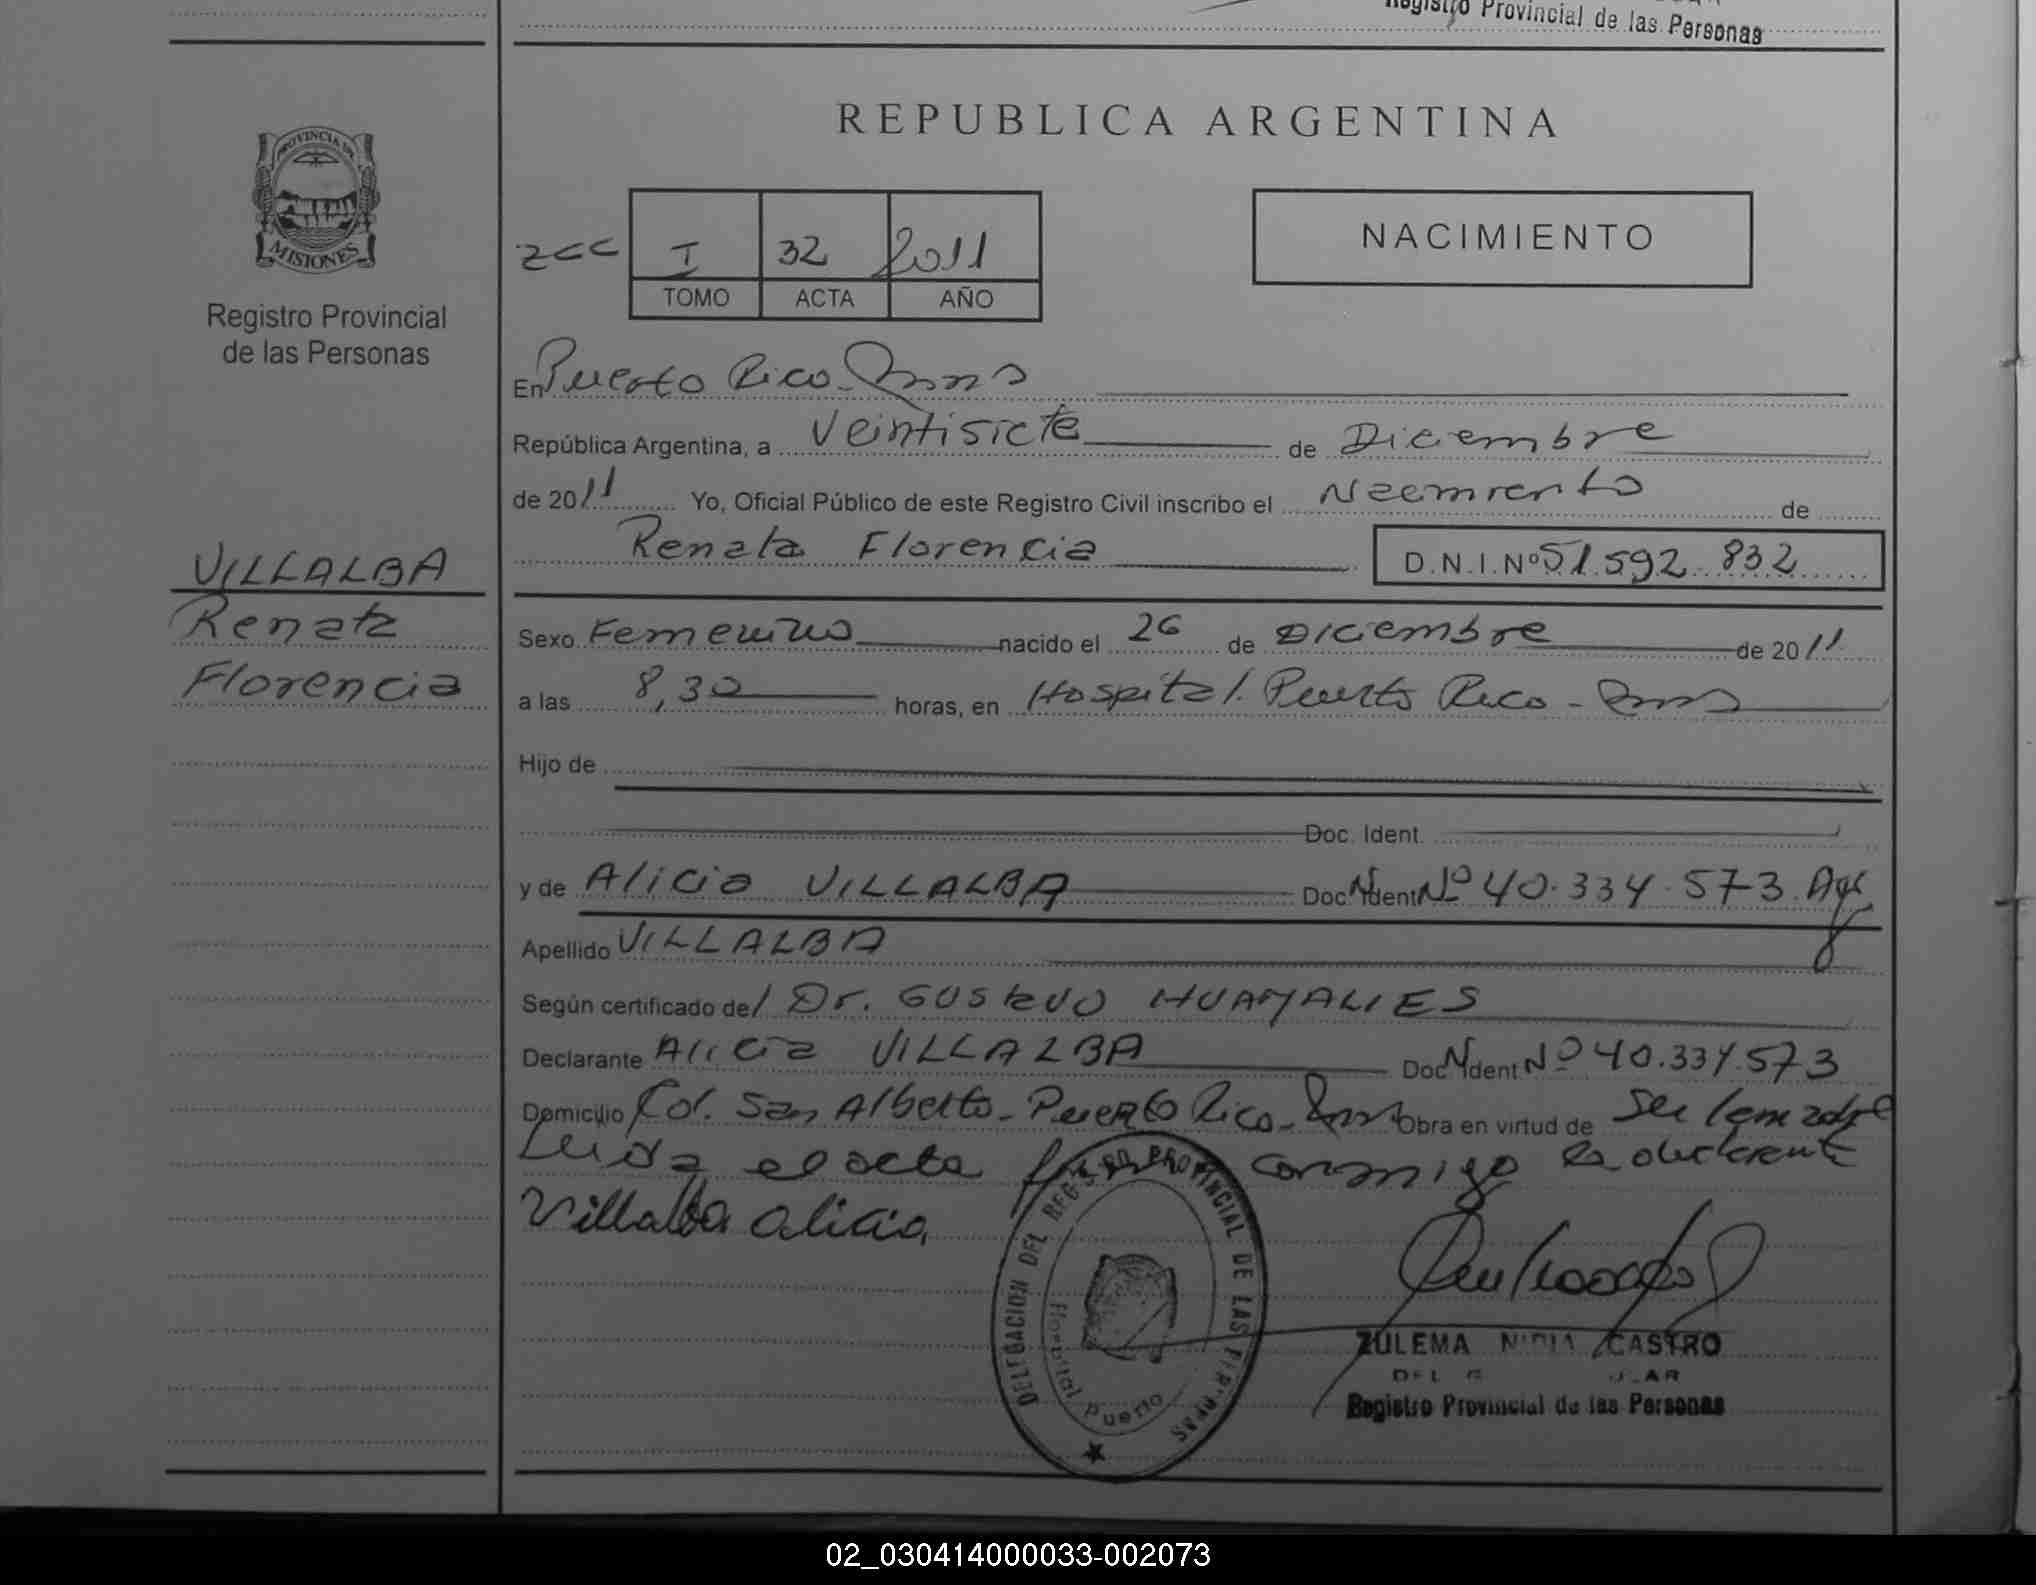 Registro Provincial de las Personas
PROVINCIA DE
MISIONES
Registro Provincial
de las Personas
VILLALBA
Renata
Florencia
REPUBLICA ARGENTINA
zcc I 32 2011
TOMO ACTA AÑO
NACIMIENTO
En Puerto Rico - Mnes
República Argentina, a Veintisiete de Diciembre
de 2011 Yo, Oficial Público de este Registro Civil inscribo el Nacimiento de
Renata Florencia D.N.I.Nº 51.592.832
Sexo Femenino nacido el 26 de Diciembre de 2011
a las 8,30 horas, en Hospital Puerto Rico - Mnes
Hijo de
Doc. Ident.
y de Alicia VILLALBA Doc. N. Ident. Nº 40.334.573 Arg.
Apellido VILLALBA
Según certificado del Dr. GUSTAVO HUAMALIES
Declarante Alicia VILLALBA Doc. N. Ident. Nº 40.334.573
Domicilio Col. San Alberto - Puerto Rico - Mnes Obra en virtud de ser la madre
Leida el acta conmigo la declarante
Villalba alicia
DELEGACION DEL REGISTRO PROVINCIAL DE LAS PERSONAS
Hospital Puerto
ZULEMA NIDIA CASTRO
Registro Provincial de las Personas
02_030414000033-002073